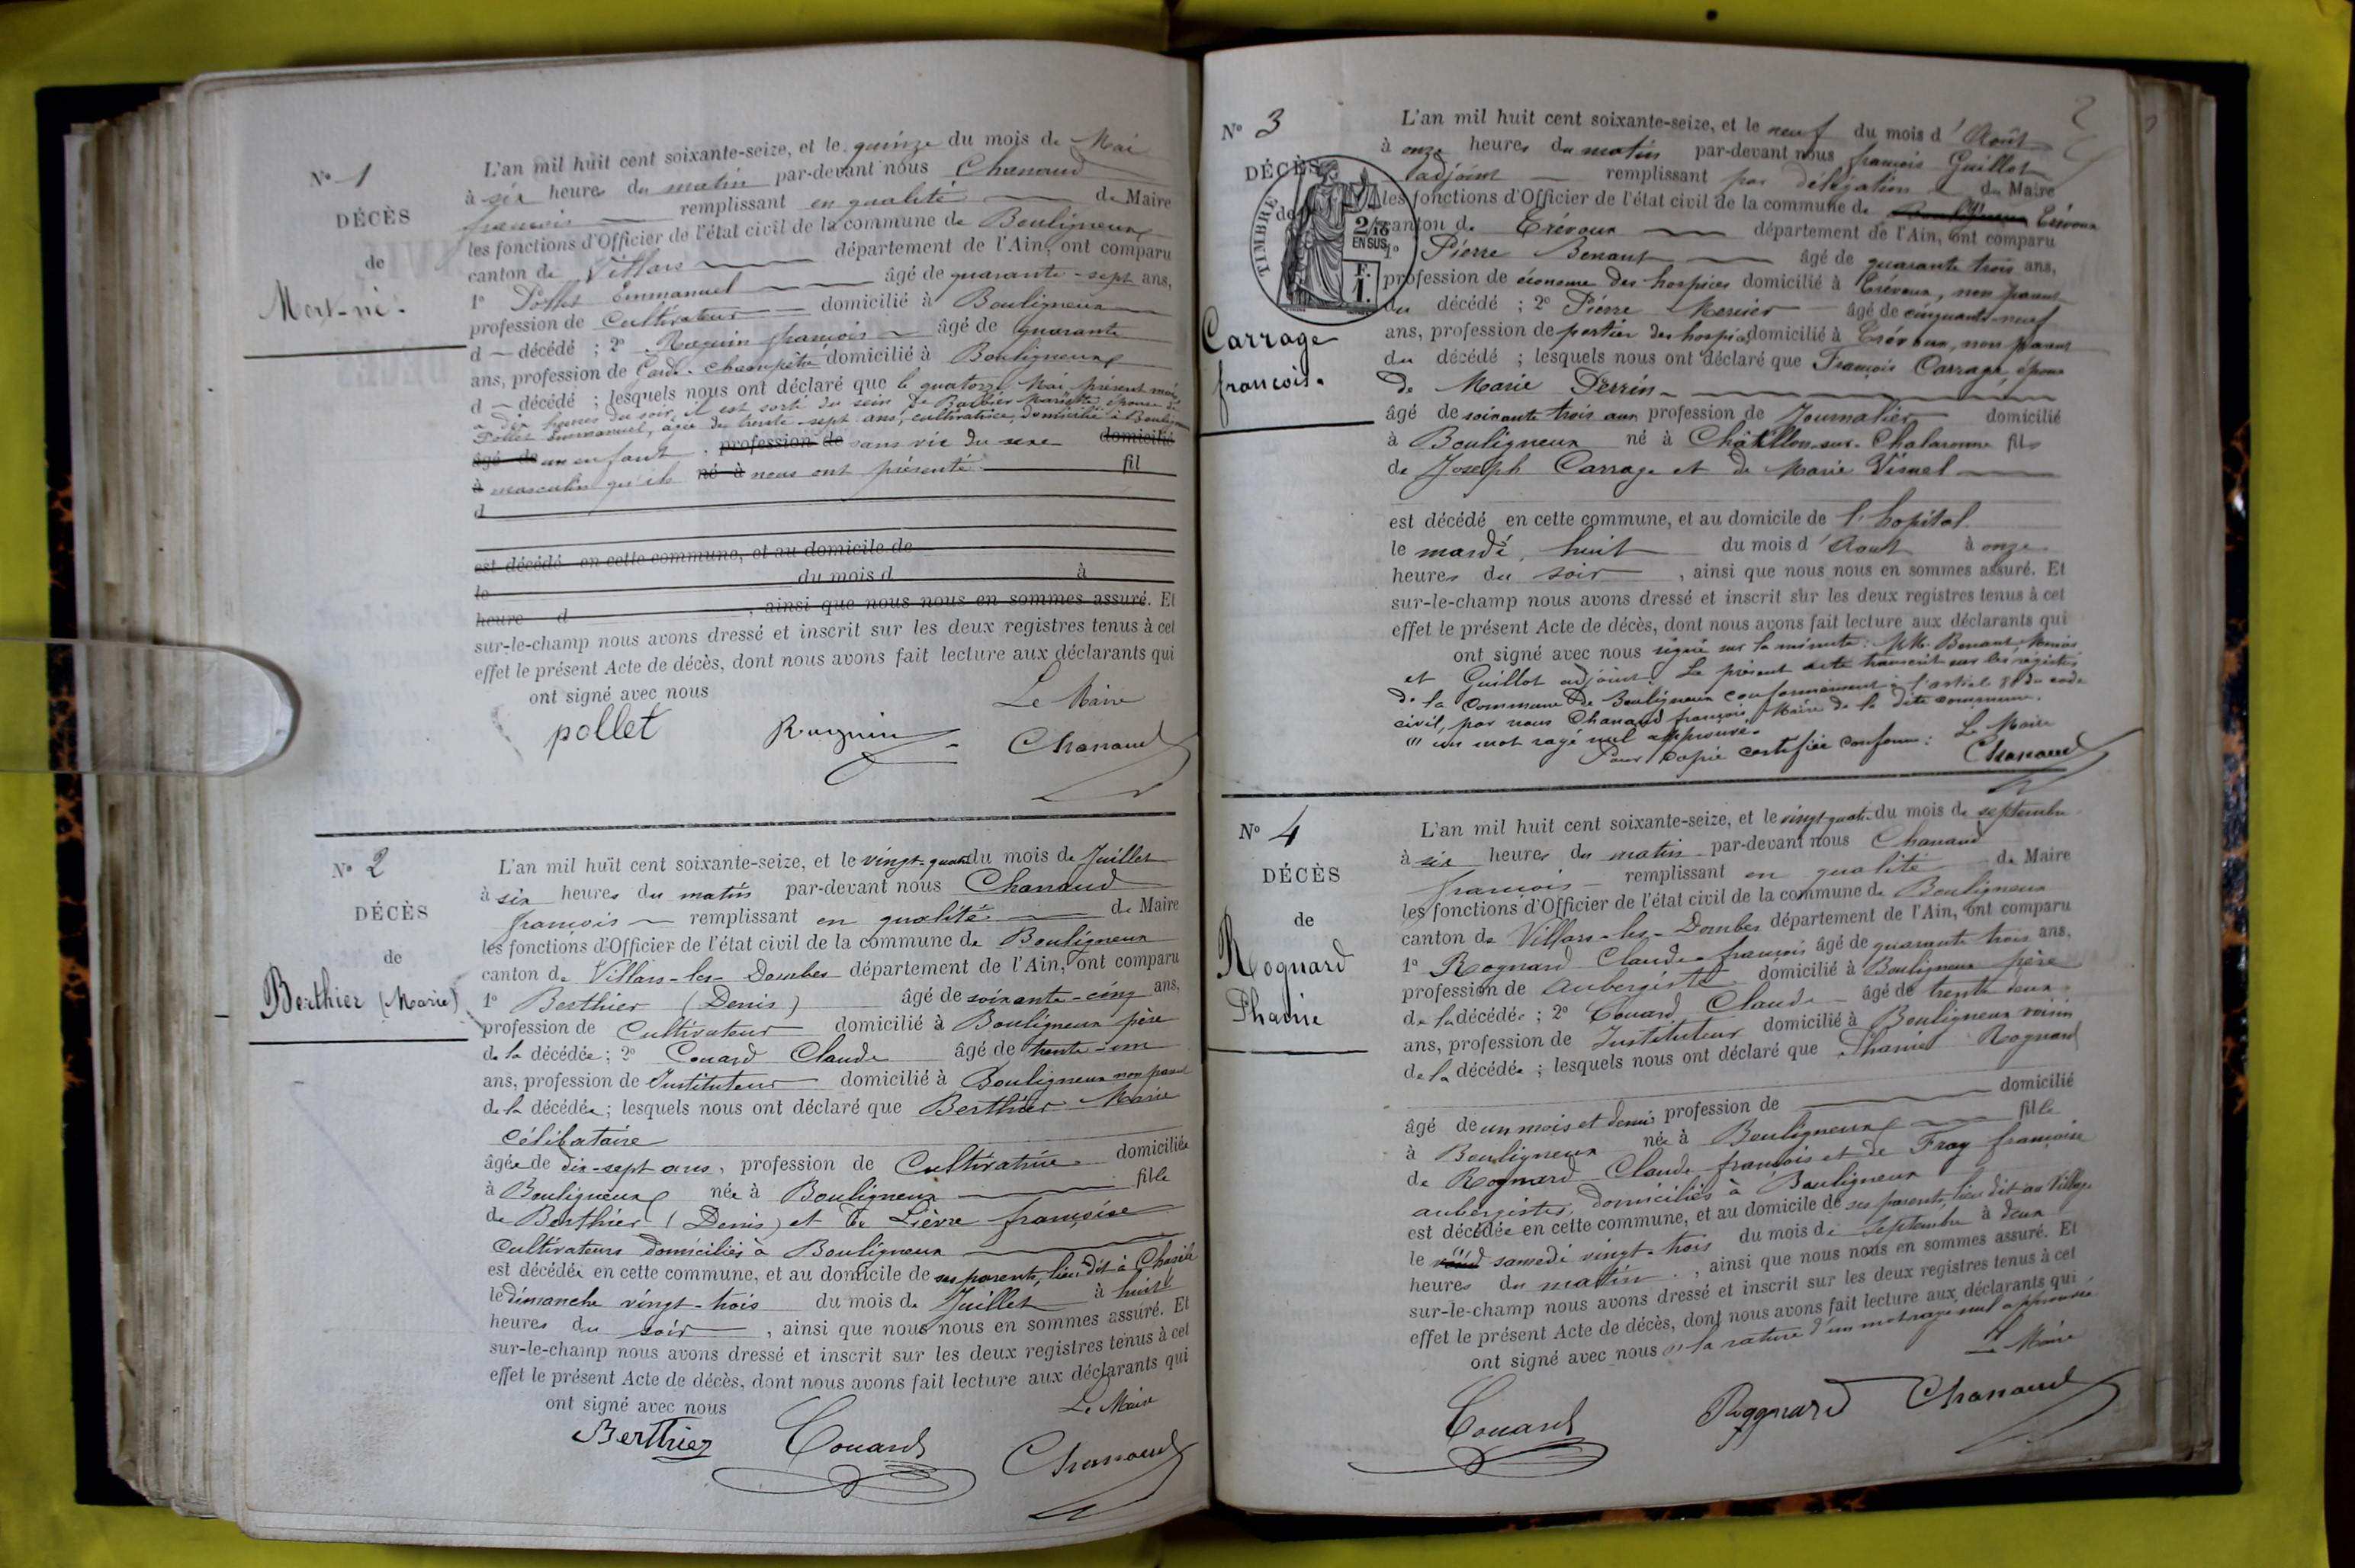 N° 1
DÉCÈS
de
Mort-né.
L'an mil huit cent soixante-seize, et le quinze du mois de Mai
à six heures du matin par-devant nous Chanaud
françois remplissant en qualité de Maire
les fonctions d'Officier de l'état civil de la commune de Bouligneux
canton de Villars département de l'Ain, ont comparu
1° Pollet Emmanuel âgé de quarante-sept ans,
profession de Cultivateur domicilié à Bouligneux
d décédé ; 2° françois âgé de quarante
ans, profession de Garde-champêtre domicilié à Bouligneux
d décédé ; lesquels nous ont déclaré que le quatorze Mai présent mois
à dix heures du soir, il est sorti du sein de Barbier Mariette épouse de
Pollet Emmanuel, âgée de trente-sept ans, cultivatrice, domiciliée à Bouligneux
âgé de un enfant, profession de sans vie du sexe domicilié
à masculin qu'ils né à nous ont présenté. fil
d
est décédé en cette commune, et au domicile de
le du mois d à
heure d , ainsi que nous nous en sommes assuré. Et
sur-le-champ nous avons dressé et inscrit sur les deux registres tenus à cet
effet le présent Acte de décès, dont nous avons fait lecture aux déclarants qui
ont signé avec nous
Le Maire
pollet Chanaud
N° 2
DÉCÈS
de
Berthier (Marie)
L'an mil huit cent soixante-seize, et le vingt-quatre du mois de Juillet
à six heures du matin par-devant nous Chanaud
françois remplissant en qualité de Maire
les fonctions d'Officier de l'état civil de la commune de Bouligneux
canton de Villars-les-Dombes département de l'Ain, ont comparu
1° Berthier (Denis) âgé de soixante-cinq ans,
profession de Cultivateur domicilié à Bouligneux père
de la décédée ; 2° Couard Claude âgé de trente-un
ans, profession de Instituteur domicilié à Bouligneux non parent
de la décédée ; lesquels nous ont déclaré que Berthier Marie
Célibataire
âgée de dix-sept ans, profession de Cultivatrice domiciliée
à Bouligneux née à Bouligneux fille
de Berthier (Denis) et de Lièvre françoise
Cultivateurs domiciliés à Bouligneux
est décédée en cette commune, et au domicile de ses parents, lieu dit à
le dimanche vingt-trois du mois de Juillet à huit
heures du soir , ainsi que nous nous en sommes assuré. Et
sur-le-champ nous avons dressé et inscrit sur les deux registres tenus à cet
effet le présent Acte de décès, dont nous avons fait lecture aux déclarants qui
ont signé avec nous
Le Maire
Berthier Couard Chanaud
N° 3
DÉCÈS
de
TIMBRE
2/10
EN SUS
F.
1.
Carrage
françois.
L'an mil huit cent soixante-seize, et le neuf du mois d'Août
à onze heures du matin par-devant nous françois Guillot
adjoint remplissant par délégation du Maire
les fonctions d'Officier de l'état civil de la commune de Bouligneux Trévoux
canton de Trévoux département de l'Ain, ont comparu
1° Pierre Benant âgé de quarante trois ans,
profession de économe des hospices domicilié à Trévoux, non parent
du décédé ; 2° Pierre Mercier âgé de cinquante-neuf
ans, profession de portier des hospices domicilié à Trévoux, non parent
du décédé ; lesquels nous ont déclaré que François Carrage, époux
de Marie Perrin
âgé de soixante trois ans profession de Journalier domicilié
à Bouligneux né à Châtillon-sur-Chalaronne fils
de Joseph Carrage et de Marie
est décédé en cette commune, et au domicile de l'hopital
le mardi, huit du mois d'Aout à onze
heures du soir , ainsi que nous nous en sommes assuré. Et
sur-le-champ nous avons dressé et inscrit sur les deux registres tenus à cet
effet le présent Acte de décès, dont nous avons fait lecture aux déclarants qui
ont signé avec nous signé sur la minute : MM. Benant, Mercier
et Guillot adjoint. Le présent acte transcrit sur les registres
de la Commune de Bouligneux conformément à l'article 80 du code
civil, par nous Chanaud françois, Maire de la dite commune.
un mot rayé nul approuvé.
Pour copie certifiée conforme : Le Maire
Chanaud
N° 4
DÉCÈS
de
Rognard
Phanie
L'an mil huit cent soixante-seize, et le vingt quatre du mois de septembre
à six heures du matin par-devant nous Chanaud
françois remplissant en qualité de Maire
les fonctions d'Officier de l'état civil de la commune de Bouligneux
canton de Villars-les-Dombes département de l'Ain, ont comparu
1° Rognard Claude françois âgé de quarante trois ans,
profession de Aubergiste domicilié à Bouligneux père
de la décédée ; 2° Couard Claude âgé de trente deux
ans, profession de Instituteur domicilié à Bouligneux voisin
de la décédée ; lesquels nous ont déclaré que Phanie Rognard
domicilié
âgé de un mois et demi profession de
à Bouligneux née à Bouligneux fille
de Rognard Claude françois et de Fray françoise
aubergistes, domiciliés à Bouligneux
est décédée en cette commune, et au domicile de ses parents, lieu dit au Village
le samedi vingt-trois du mois de septembre à deux
heures du matin , ainsi que nous nous en sommes assuré. Et
sur-le-champ nous avons dressé et inscrit sur les deux registres tenus à cet
effet le présent Acte de décès, dont nous avons fait lecture aux déclarants qui
ont signé avec nous la rature d'un mot rayé nul approuvée
Le Maire
Couard Rognard Chanaud